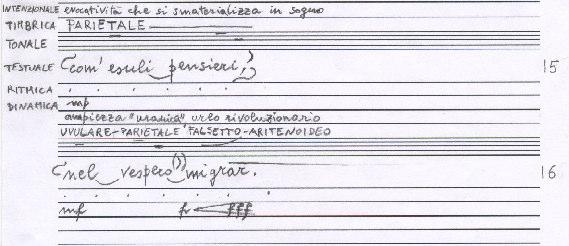 INTENZIONALE evocatività che si smaterializza in sogno
TIMBRICA PARIETALE
TONALE
TESTUALE com'esuli pensieri, 15
RITMICA
DINAMICA mp
ampiezza "uranica" urlo rivoluzionario
UVULARE-PARIETALE FALSETTO-ARITENOIDEO
nel vespero migrar. 16
mf f fff